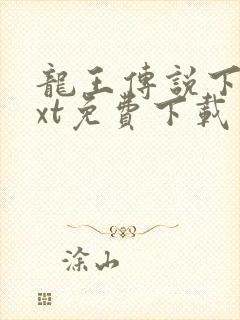 龍王傳説下
xt免費下載
涂山